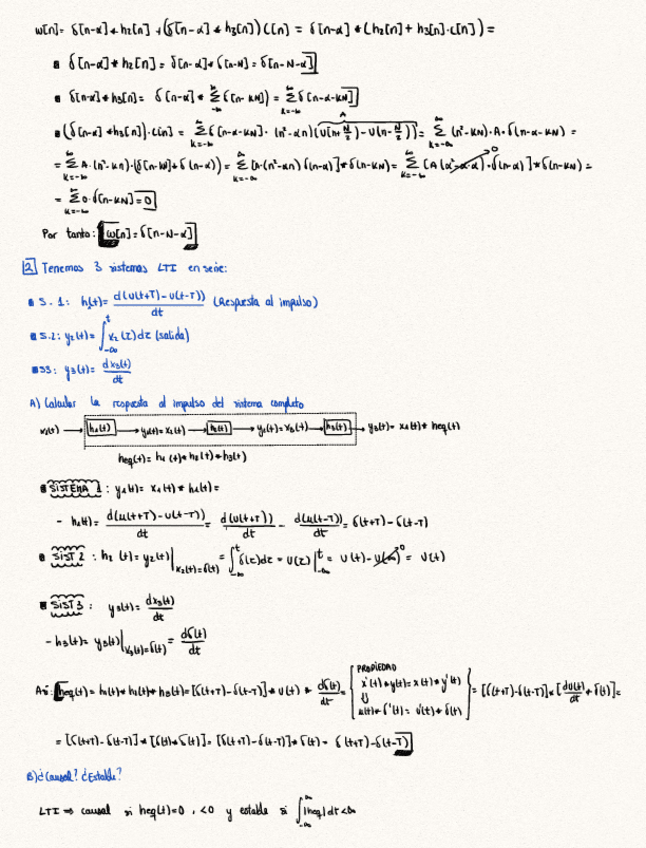 w[n]= δ[n-α]*h₂[n] + (δ[n-α] * h₃[n]) c[n] = δ[n-α] * (h₂[n] + h₃[n]·c[n]) =
δ[n-α] * h₂[n] = δ[n-α] * δ[n-N] = δ[n-N-α]
δ[n-α] * h₃[n] = δ[n-α] * Σ δ[n-kN]) = Σ δ[n-α-kN]
(δ[n-α] * h₃[n])·c[n] = Σ δ[n-α-kN] · (n²-αn) (u[n+N/2] - u[n-N/2]) = Σ (n²-kN)·A·δ[n-α-kN) =
= Σ A·(n²-kn)·(δ[n-kN] * δ(n-α)) = Σ [A·(n²-αn) δ(n-α)] * δ(n-kN) = Σ [A(α²-α·α)·δ(n-α)] * δ(n-kN) =
= Σ 0·δ[n-kN] = 0
Por tanto: w[n] = δ[n-N-α]
2 Tenemos 3 sistemas LTI en serie:
S. 1: h₁(t)= d(u(t+T)-u(t-T))/dt (Respuesta al impulso)
S.2: y₂(t)= ∫_{-∞}^{t} x₂(τ)dτ (salida)
S3: y₃(t)= dx₃(t)/dt
A) Calcular la respuesta al impulso del sistema completo
x₁(t) → h₁(t) → y₁(t)=x₂(t) → h₂(t) → y₂(t)=x₃(t) → h₃(t) → y₃(t)= x₁(t) * heq(t)
heq(t)= h₁(t)*h₂(t)*h₃(t)
SISTEMA 1: y₁(t)= x₁(t) * h₁(t)=
- h₁(t)= d(u(t+T)-u(t-T))/dt = d(u(t+T))/dt - d(u(t-T))/dt = δ(t+T)-δ(t-T)
SIST 2: h₂(t)= y₂(t)|_{x₂(t)=δ(t)} = ∫_{-∞}^{t} δ(τ)dτ = u(τ)|_{-∞}^{t} = u(t)-u(-∞)⁰ = u(t)
SIST 3: y₃(t)= dx₃(t)/dt
- h₃(t)= y₃(t)|_{x₃(t)=δ(t)} = dδ(t)/dt
PROPIEDAD
Así: heq(t)= h₁(t)*h₂(t)*h₃(t)=[δ(t+T)-δ(t-T)] * u(t) * dδ(t)/dt = { x'(t)*y(t)= x(t)*y'(t) ⇓ u(t)*δ'(t)= u'(t)*δ(t) } = [δ(t+T)-δ(t-T)] * [du(t)/dt * δ(t)]=
= [δ(t+T)-δ(t-T)] * [δ(t)*δ(t)]= [δ(t+T)-δ(t-T)] * δ(t) = δ(t+T)-δ(t-T)
B) ¿Causal? ¿Estable?
LTI ⇒ causal si heq(t)=0, <0 y estable si ∫_{-∞}^{∞} |heq| dt <∞